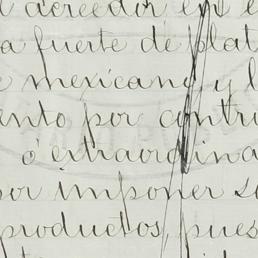 l acreedor en
a fuerte de plat
e mexicano y l
ento por contri
ó extraordina
por imponer so
productos, pues